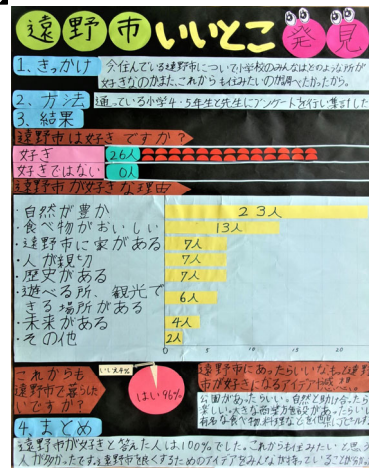 遠野市いいとこ発見
1、きっかけ
今住んでいる遠野市について小学校のみんなはどのような所が
好きなのかまた、これからも住みたいのか調べたかったから。
2、方法
通っている小学4・5年生と先生にアンケートを行い集計した
3、結果
遠野市は好きですか?
好き 26人
好きではない 0人
遠野市が好きな理由
・自然が豊か 23人
・食べ物がおいしい 13人
・遠野市に家がある 7人
・人が親切 7人
・歴史がある 7人
・遊べる所、観光で
きる場所がある 6人
・未来がある 4人
・その他 2人
0 5 10 15 20
これからも
遠野市で暮らした
いですか?
いいえ4%
はい96%
遠野市にあったらいいなもっと遠野
市が好きになるアイデア
公園があったらいい。自然と助け合ったら
楽しい。大きな商業施設があったらいい
4、まとめ
遠野市が好きと答えた人は100%でした。これからも住みたいと思う
人が多かったです。遠野市を良くするためのアイデアを